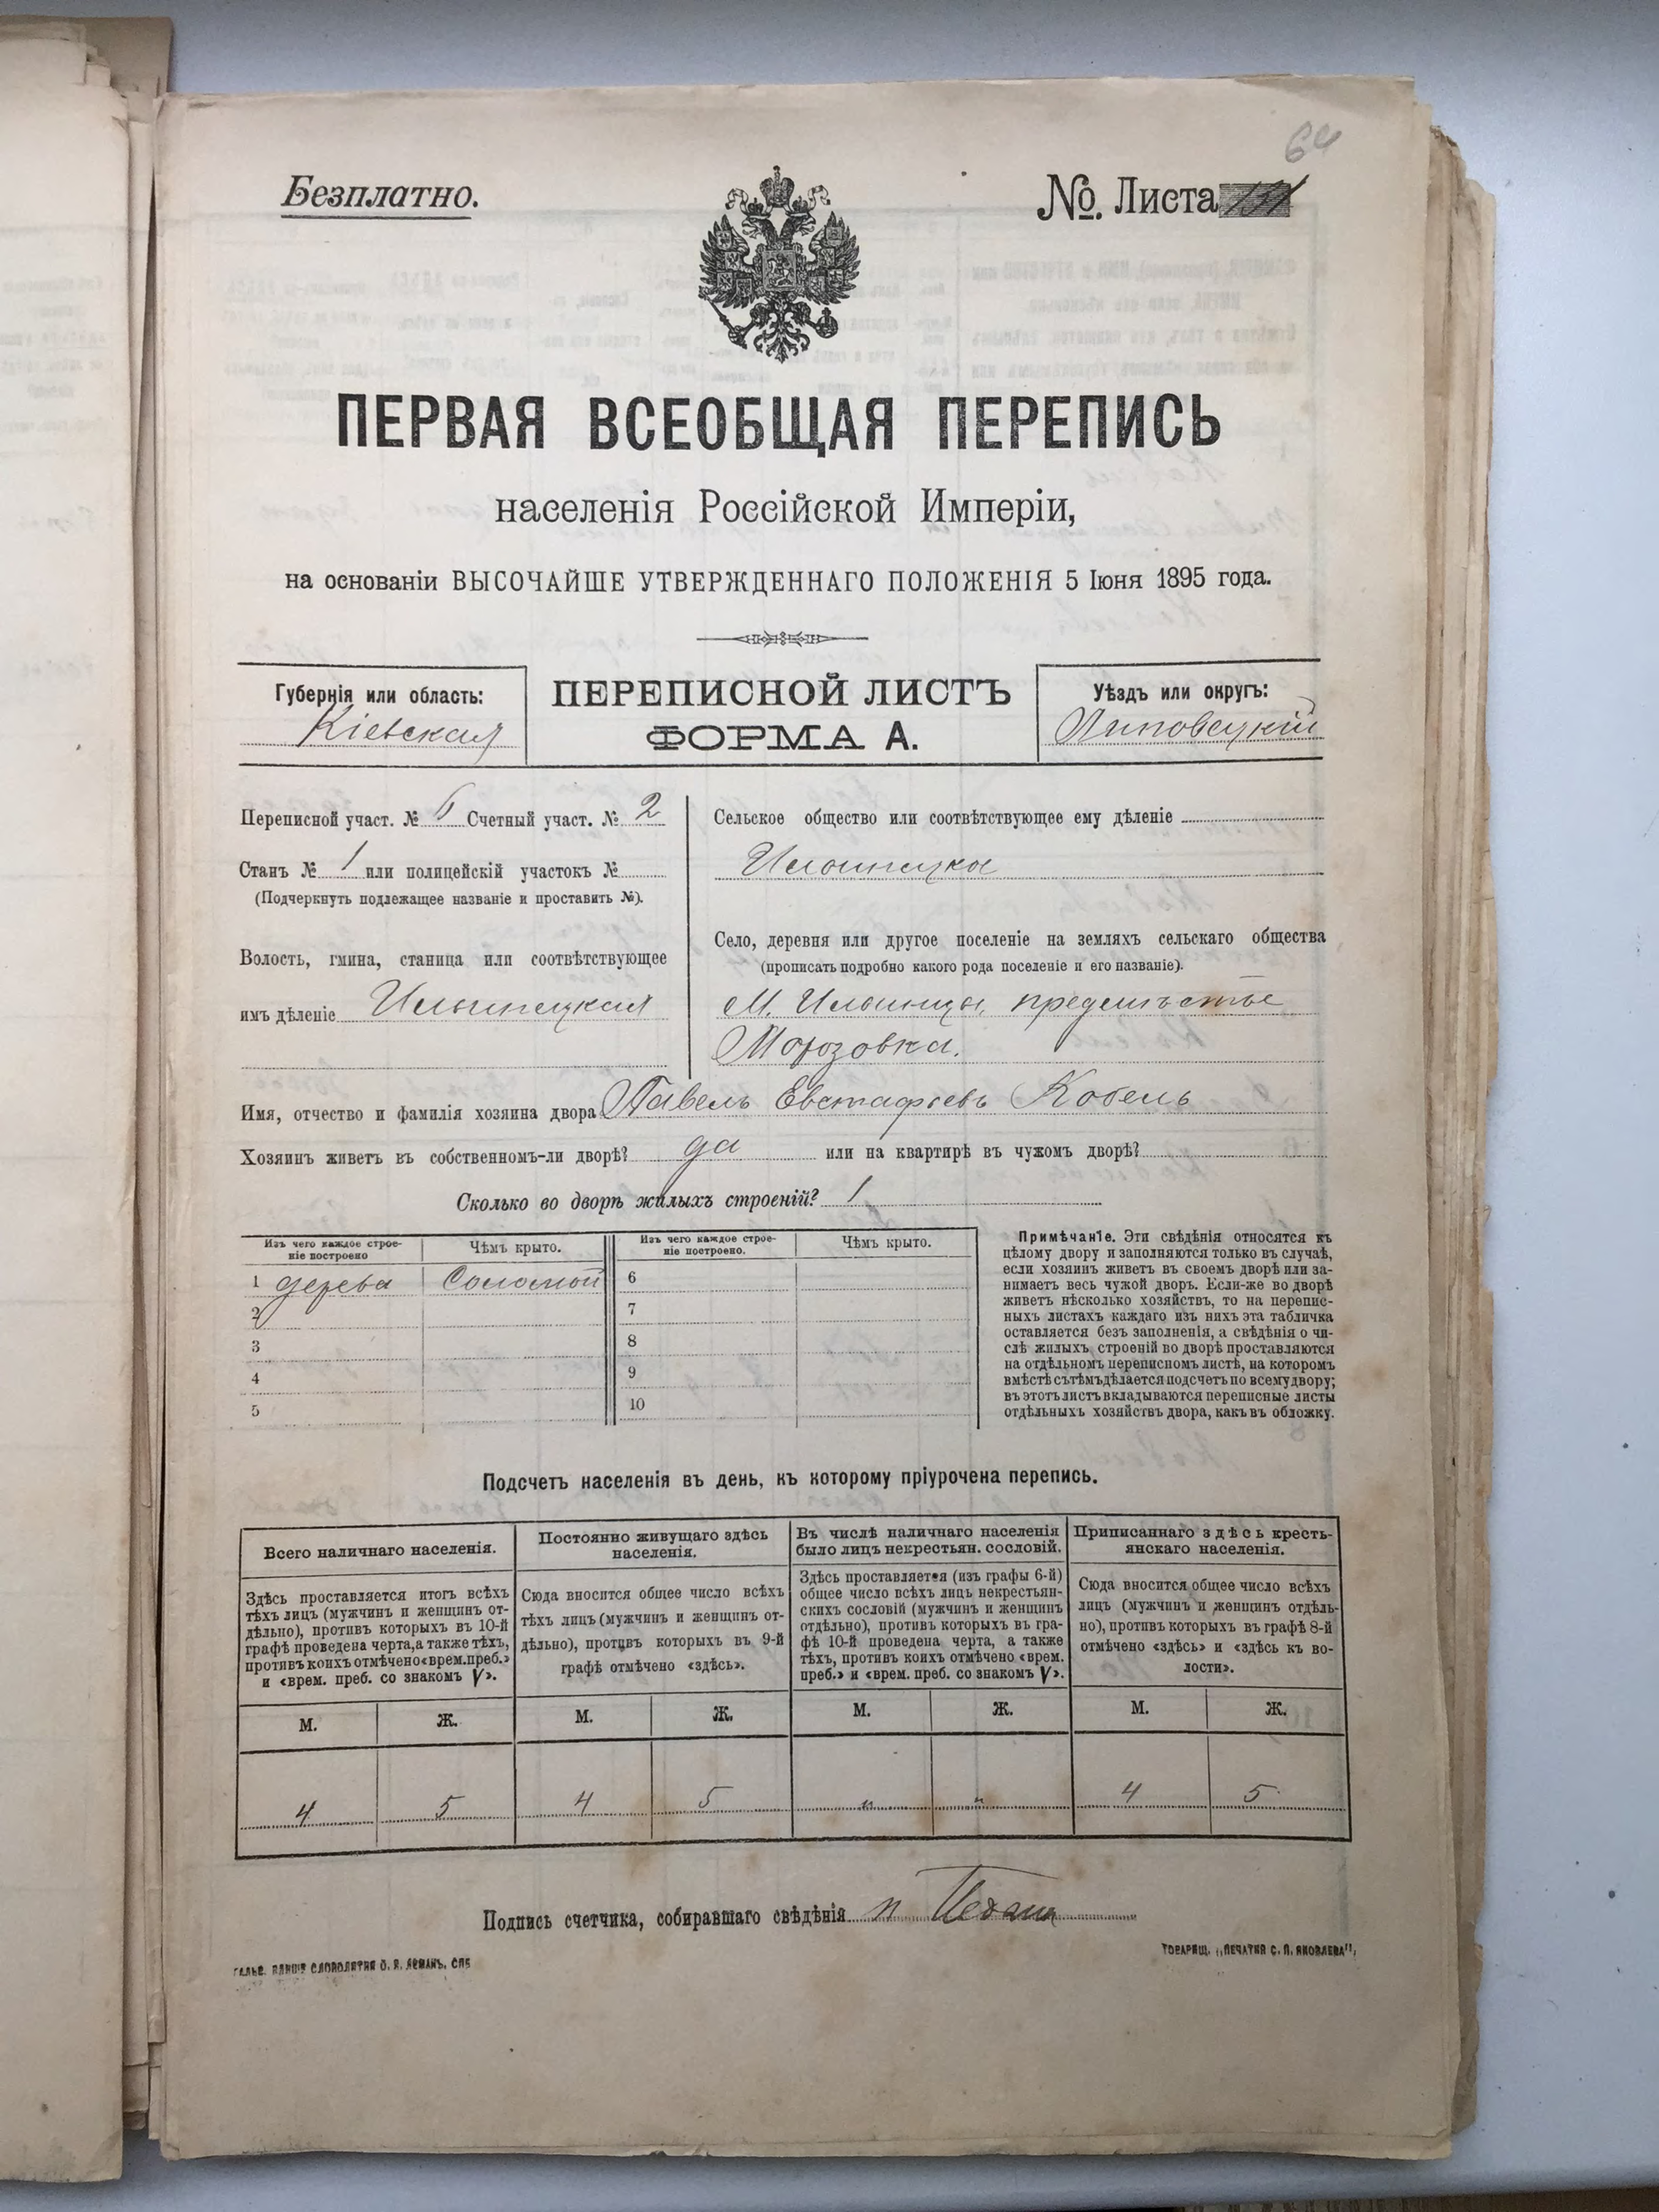 64
Безплатно.
№. Листа 131
ПЕРВАЯ ВСЕОБЩАЯ ПЕРЕПИСЬ
населенія Россійской Имперіи,
на основаніи ВЫСОЧАЙШЕ УТВЕРЖДЕННАГО ПОЛОЖЕНІЯ 5 Іюня 1895 года.
Губернія или область:
Кіевская
ПЕРЕПИСНОЙ ЛИСТЪ
ФОРМА А.
Уѣздъ или округъ:
Липовецкій
Переписной участ. № Счетный участ. № 2
Станъ № 1 или полицейскій участокъ №
(Подчеркнуть подлежащее названіе и проставить №).
Волость, гмина, станица или соотвѣтствующее
имъ дѣленіе Ильинецкая
Сельское общество или соотвѣтствующее ему дѣленіе
Ильинецкое
Село, деревня или другое поселеніе на земляхъ сельскаго общества
(прописать подробно какого рода поселеніе и его названіе).
М. Ильинцы, предмѣстье
Морозовка.
Имя, отчество и фамилія хозяина двора Павелъ Евстафьевъ Кобель
Хозяинъ живетъ въ собственномъ-ли дворѣ? да или на квартирѣ въ чужомъ дворѣ?
Сколько во дворѣ жилыхъ строеній? 1
Изъ чего каждое строе-
ніе построено
Чѣмъ крыто.
Изъ чего каждое строе-
ніе построено.
Чѣмъ крыто.
1 дерева Соломой 6
2 7
3 8
4 9
5 10
Примѣчаніе. Эти свѣдѣнія относятся къ
цѣлому двору и заполняются только въ случаѣ,
если хозяинъ живетъ въ своемъ дворѣ или за-
нимаетъ весь чужой дворъ. Если-же во дворѣ
живетъ нѣсколько хозяйствъ, то на перепис-
ныхъ листахъ каждаго изъ нихъ эта табличка
оставляется безъ заполненія, а свѣдѣнія о чи-
слѣ жилыхъ строеній во дворѣ проставляются
на отдѣльномъ переписномъ листѣ, на которомъ
вмѣстѣ съ тѣмъ дѣлается подсчетъ по всему двору;
въ этотъ листъ вкладываются переписные листы
отдѣльныхъ хозяйствъ двора, какъ въ обложку.
Подсчетъ населенія въ день, къ которому пріурочена перепись.
Всего наличнаго населенія.
Здѣсь проставляется итогъ всѣхъ
тѣхъ лицъ (мужчинъ и женщинъ от-
дѣльно), противъ которыхъ въ 10-й
графѣ проведена черта, а также тѣхъ,
противъ коихъ отмѣчено «врем. преб.»
и «врем. преб. со знакомъ V».
М. Ж.
4 5
Постоянно живущаго здѣсь
населенія.
Сюда вносится общее число всѣхъ
тѣхъ лицъ (мужчинъ и женщинъ от-
дѣльно), противъ которыхъ въ 9-й
графѣ отмѣчено «здѣсь».
М. Ж.
4 5
Въ числѣ наличнаго населенія
было лицъ некрестьян. сословій.
Здѣсь проставляется (изъ графы 6-й)
общее число всѣхъ лицъ некрестьян-
скихъ сословій (мужчинъ и женщинъ
отдѣльно), противъ которыхъ въ гра-
фѣ 10-й проведена черта, а также
тѣхъ, противъ коихъ отмѣчено «врем.
преб.» и «врем. преб. со знакомъ V».
М. Ж.
" "
Приписаннаго здѣсь кресть-
янскаго населенія.
Сюда вносится общее число всѣхъ
лицъ (мужчинъ и женщинъ отдѣль-
но), противъ которыхъ въ графѣ 8-й
отмѣчено «здѣсь» и «здѣсь къ во-
лости».
М. Ж.
4 5
Подпись счетчика, собиравшаго свѣдѣнія
ТОВАРИЩ. „ПЕЧАТНЯ С. П. ЯКОВЛЕВА",